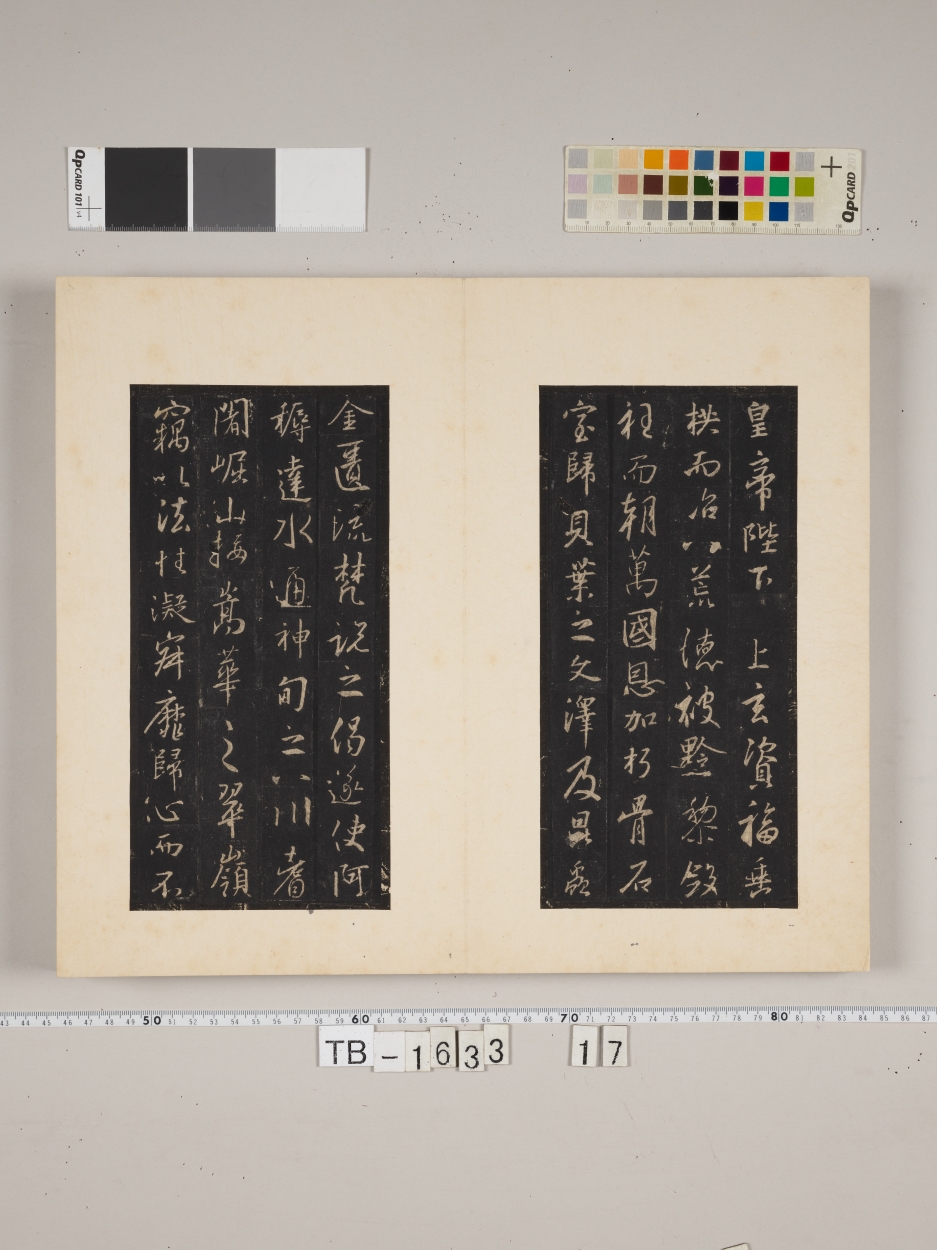 QPCARD 101 v4
QPCARD 201
皇帝陛下 上玄資福垂
拱而治八荒德被黔黎斂
衽而朝萬國恩加朽骨石
室歸貝葉之文澤及昆蟲
金匱流梵説之偈遂使阿
耨達水通神甸之八川耆
闍崛山接嵩華之翠嶺
竊以法性凝寂靡歸心而不
43 44 45 46 47 48 49 50 51 52 53 54 55 56 57 58 59 60 61 62 63 64 65 66 67 68 69 70 71 72 73 74 75 76 77 78 79 80 81 82 83 84 85 86 87
TB-1633 17